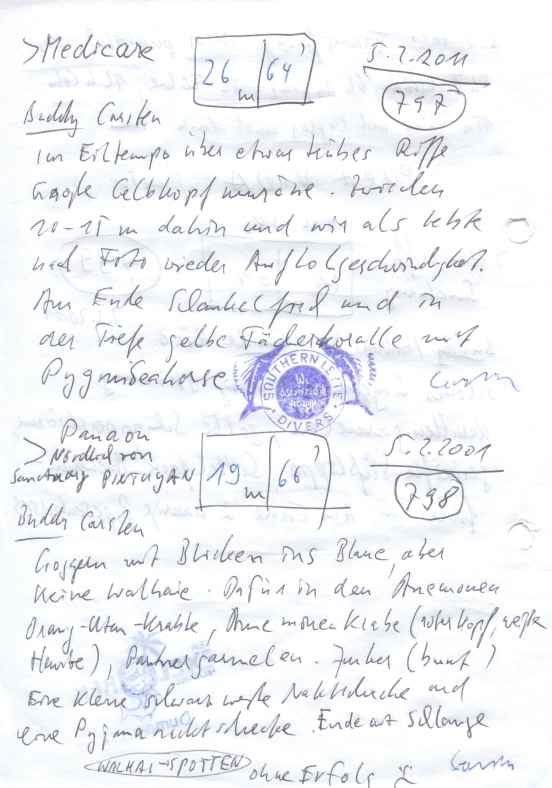 >Medicare
26 m 64'
5.2.2011
797
Buddy Carsten
im Eiltempo über etwas trübes Riffe
Große Gelbkopfmuräne. Zwischen
10-15 m dahin und wir als letzte
nach Foto wieder Aufholgeschwindigkeit.
Am Ende Schaukelfisch und in
der Tiefe gelbe Fächerkoralle mit
Pygmäseahorse
SOUTHERN LEYTE
DIVERS
Carsten
Panaon
> Nordteil von
Sanctuary PINTUYAN
19 m 66'
5.2.2001
798
Buddy Carsten
mit Blicken ins Blaue, aber
keine Walhaie. Dafür in den Anemonen
Orang-Utan-Krabbe, Anemonenkrabbe (roter Kopf, weiße
), Partnergarnelen. (bunt)
Eine kleine schwarz weiße Nacktschnecke und
eine Pyjamanacktschnecke. Ende mit Schlange
WALHAI-SPOTTEN ohne Erfolg
Carsten